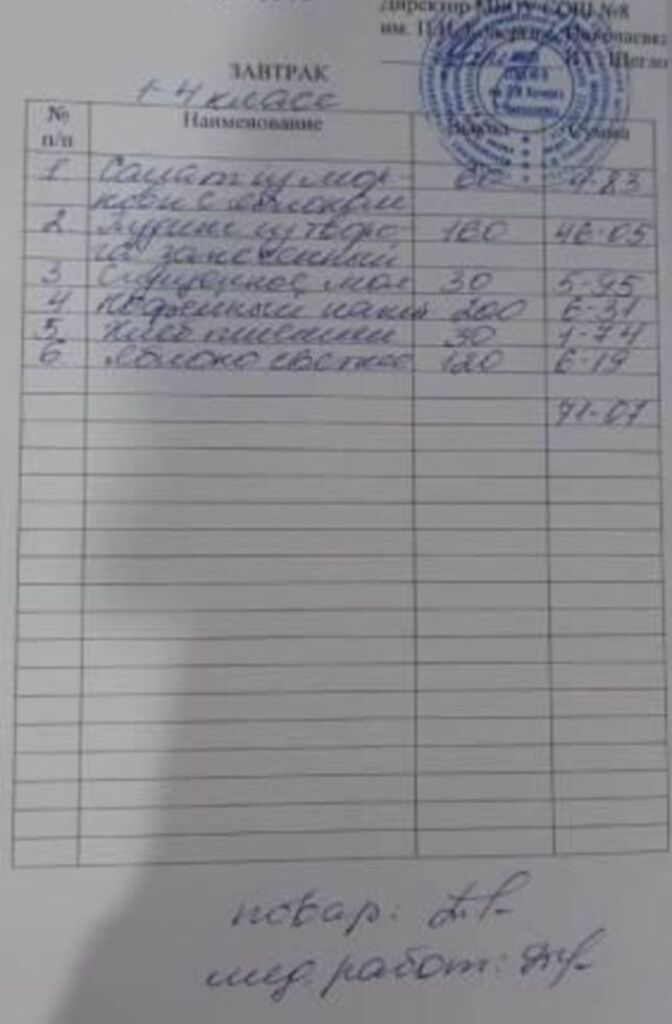 Директор МБОУ СОШ №8
им. П.И.
ЗАВТРАК
1-4 класс
№ п/п Наименование Сумма
1 Салат из мор 60 4-83
кови с яблоком
2 Пудинг из творо 160 46-05
га запеченный
3 Сгущенное мол 30 5-95
4 Кофейный напи 200 6-31
5 Хлеб пшенич 30 1-74
6 Яблоко свежее 120 6-19
71-07
повар:
мед. работ: